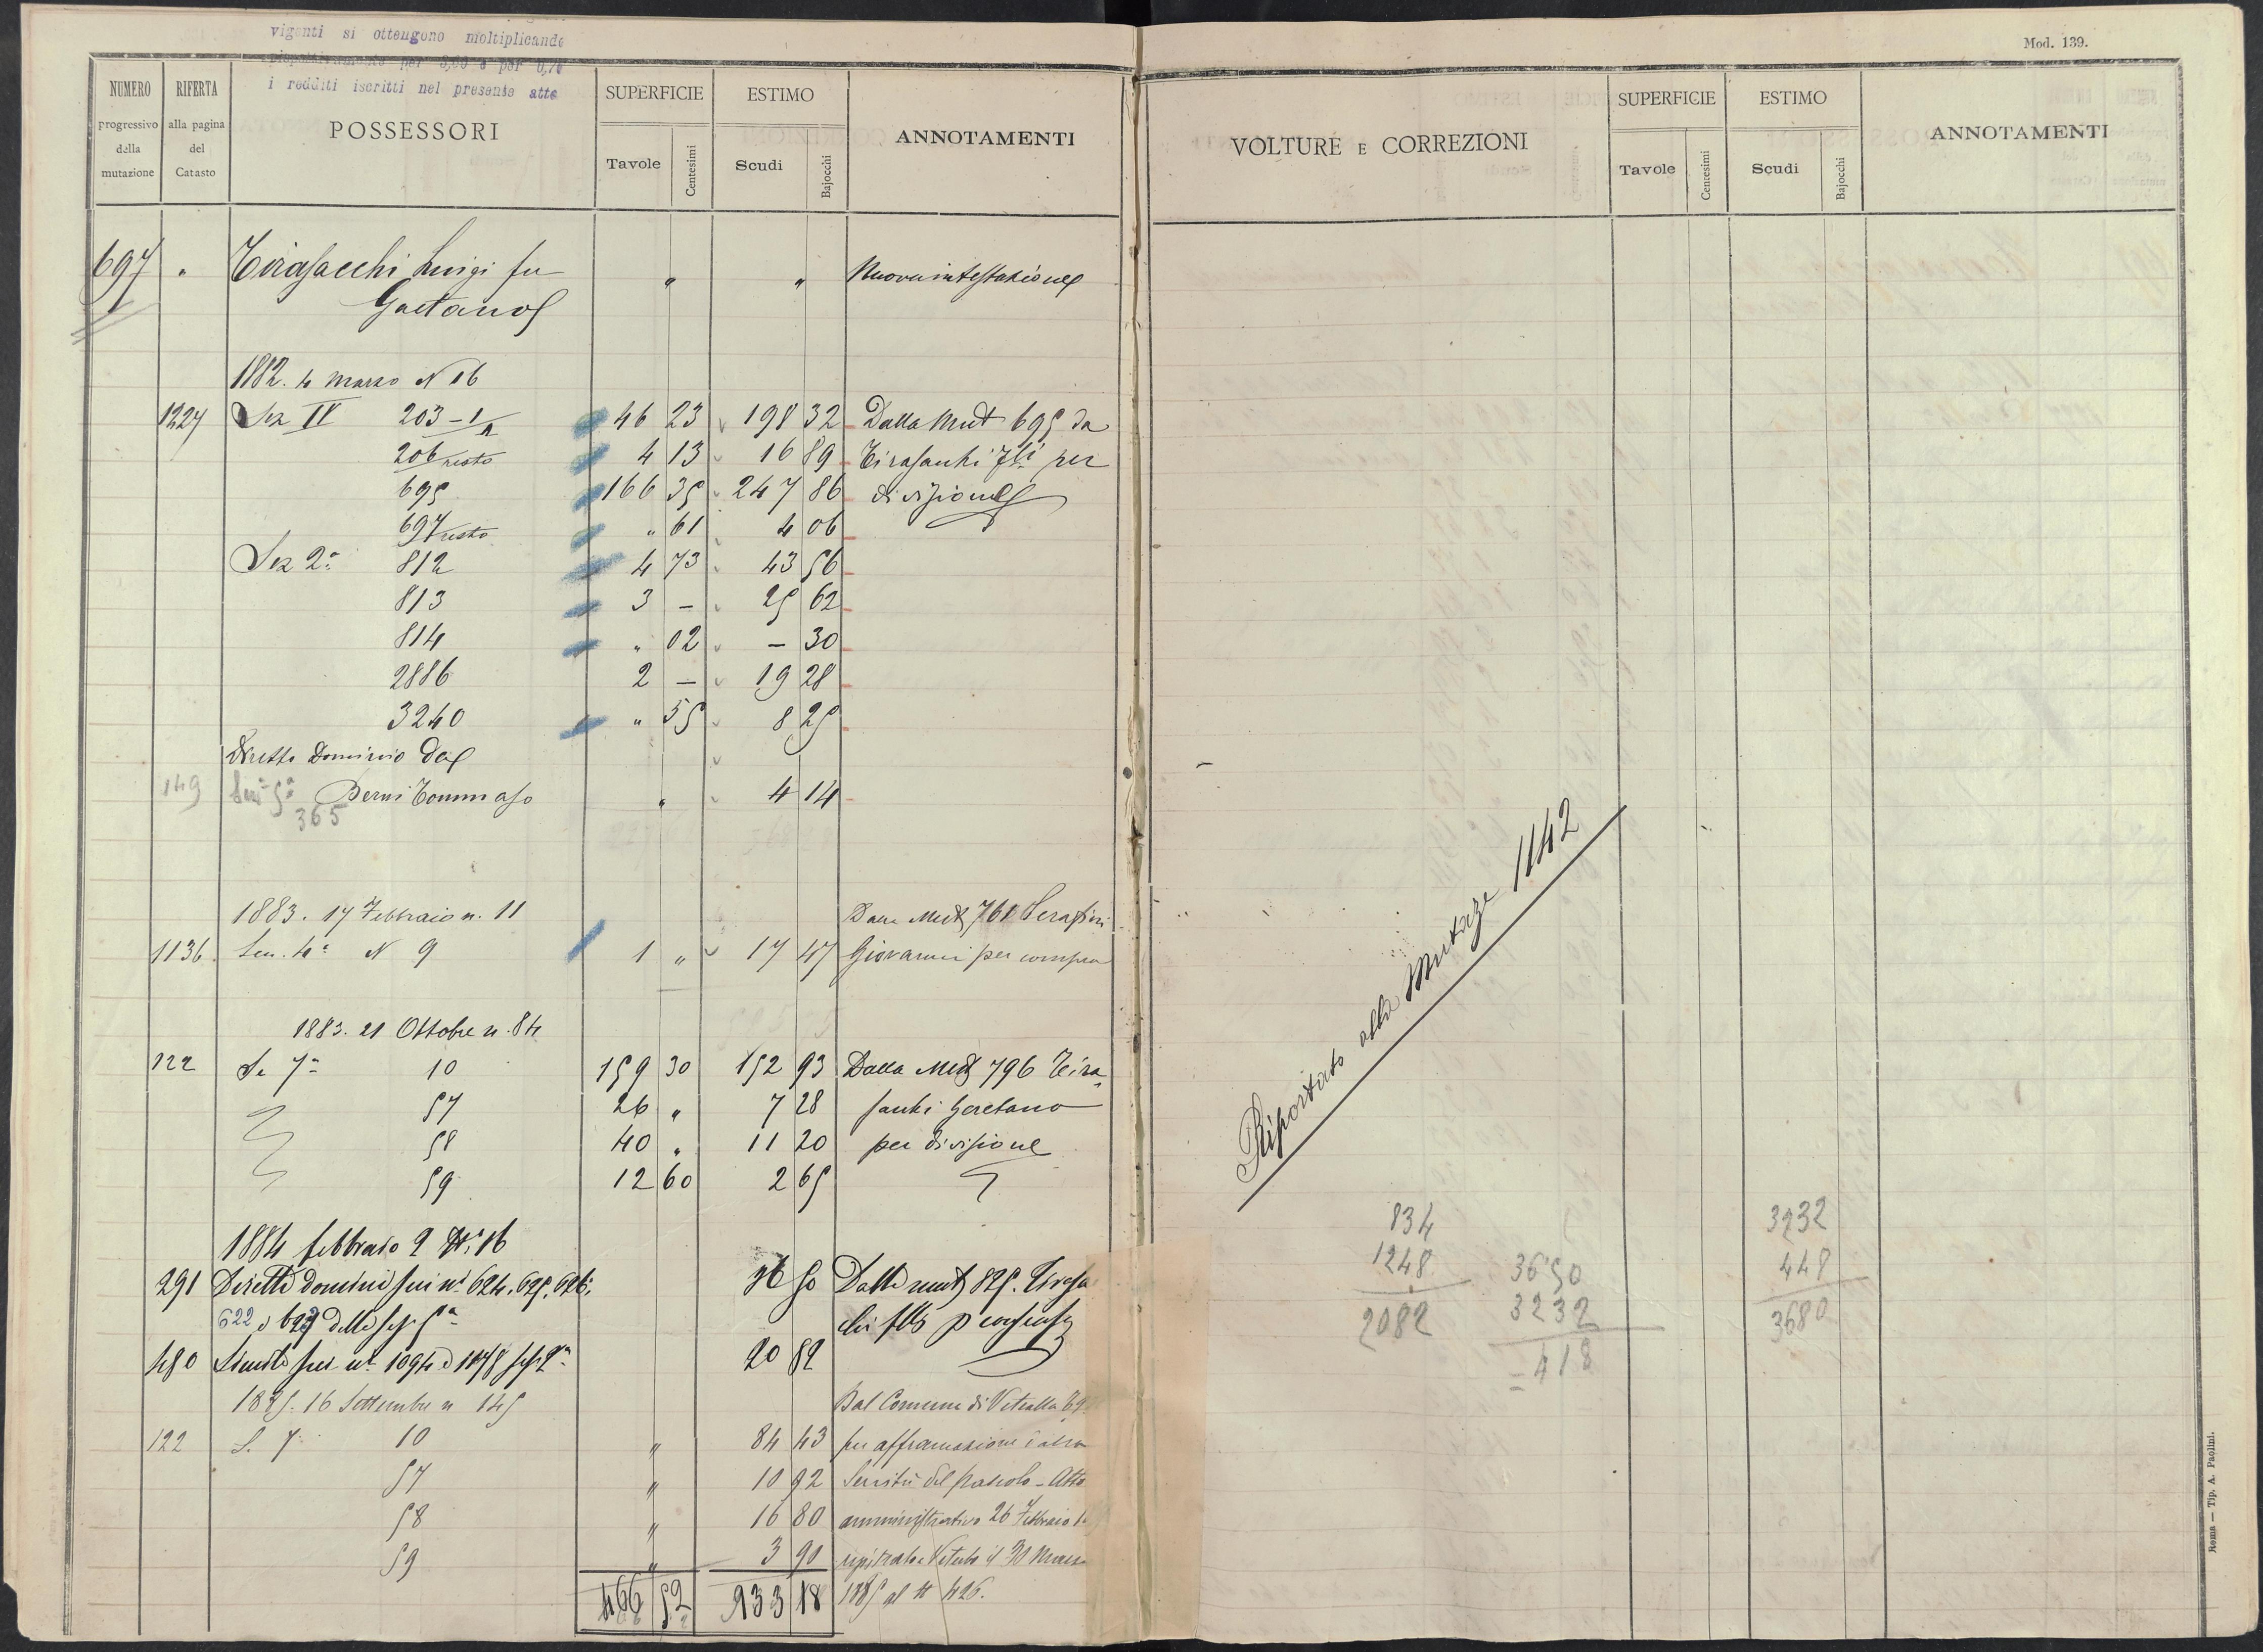 viganti si ottengono moltiplicando
rispettivamente per
i redditi iscritti nel presente atto
Mod. 139.
NUMERO progressivo della mutazione
RIFERTA alla pagina del Catasto
POSSESSORI
SUPERFICIE Tavole Centesimi
ESTIMO Scudi Bajocchi
ANNOTAMENTI
VOLTURE E CORREZIONI
SUPERFICIE Tavole Centesimi
ESTIMO Scudi Bajocchi
ANNOTAMENTI
697 " Tirasacchi Luigi fu " " Nuova intestazione
Gaetano
1882. 4 Marzo N 16
1227 Sez IV 203-1/A 46 23 198 32 Dalla Mut 695 da
206 resto 4 13 16 89 Tirasacchi Flli per
695 166 35 247 86 divisione
697 resto " 61 4 06
Sez 2a 812 4 73 43 56
813 3 - 25 62
814 " 02 - 30
2886 2 - 19 28
3240 " 55 8 25
Diretto Dominio del
149 Sez 5a Berni Tommaso " 4 14
365
1883. 17 Febbraio n. 11 Dalla Mut 761 Serafini
1136 Sez. 4a N 9 1 " 17 47 Giovanni per compra
1883. 21 Ottobre n. 84
122 Se 7a 10 159 30 152 93 Dalla Mut 796 Tira=
57 26 " 7 28 sacchi Gaetano
58 40 " 11 20 per divisione
59 12 60 2 65
1884 febbraio 9 N. 16
291 Diretti domini sui ni 624. 625. 626. 36 50 Dalla mut 825. Tirasa
622 e 623 della sez 5a chi flli p
480 Simile sui ni 1094 e 1078 sez 2a 20 82
1885. 16 Settembre n 145 Dal Comune di Vetralla
122 S. 7 10 " 84 43 per affrancazione
57 " 10 92 Servitù del pascolo - Atto
58 " 16 80 amministrativo 26 Febbraio
59 " 3 90 registrato a Viterbo il 30 Marzo
466 52 933 18 1885 al N 426.
Riportato alla Mutaze 1142
834
1248
2082
3650
3232
= 418
3232
448
3680
Roma — Tip. A. Paolini.